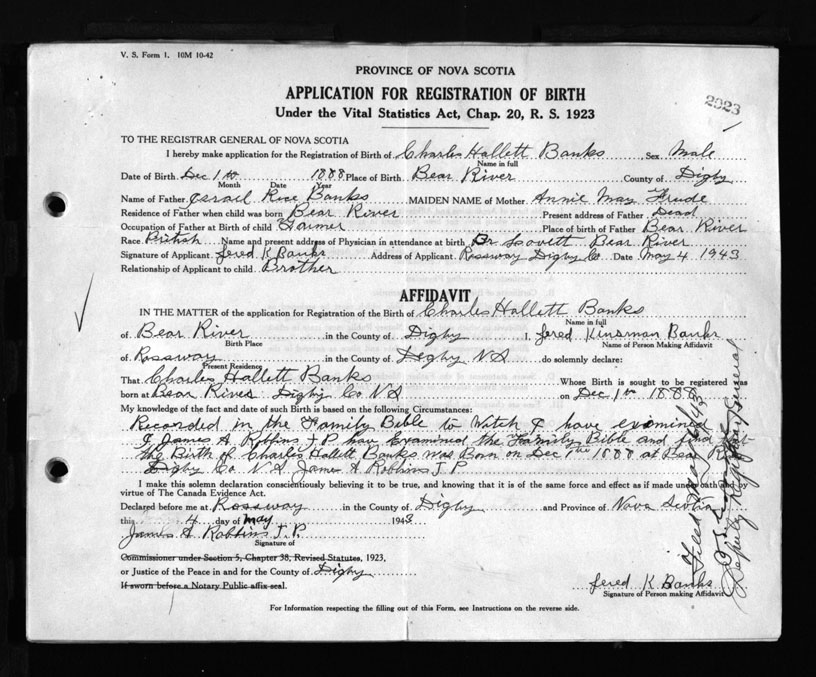 V. S. Form 1. 10M 10-42
PROVINCE OF NOVA SCOTIA
APPLICATION FOR REGISTRATION OF BIRTH
Under the Vital Statistics Act, Chap. 20, R. S. 1923
2923
TO THE REGISTRAR GENERAL OF NOVA SCOTIA
I hereby make application for the Registration of Birth of Charles Hallett Banks Sex Male
Name in full
Date of Birth Dec 1st 1888 Place of Birth Bear River County of Digby
Month Date Year
Name of Father Israel Rice Banks MAIDEN NAME of Mother Annie May
Residence of Father when child was born Bear River Present address of Father Dead
Occupation of Father at Birth of child Farmer Place of birth of Father Bear River
Race British Name and present address of Physician in attendance at birth Dr Lovett Bear River
Signature of Applicant Jered K Banks Address of Applicant Rossway Digby Co Date May 4 1943
Relationship of Applicant to child Brother
AFFIDAVIT
IN THE MATTER of the application for Registration of the Birth of Charles Hallett Banks
Name in full
of Bear River in the County of Digby I, Jered Kinsman Banks
Birth Place Name of Person Making Affidavit
of Rossway in the County of Digby N S do solemnly declare:
Present Residence
That Charles Hallett Banks Whose Birth is sought to be registered was
born at Bear River Digby Co N S on Dec 1st 1888
My knowledge of the fact and date of such Birth is based on the following Circumstances:
Recorded in the Family Bible to Witch I have examined
I James A Robbins J P have Examined the Family Bible and find that
the Birth of Charles Hallett Banks was Born on Dec 1the 1888 at Bear River
Digby Co N S James A Robbins J P
I make this solemn declaration conscientiously believing it to be true, and knowing that it is of the same force and effect as if made under oath and by
virtue of The Canada Evidence Act.
Declared before me at Rossway in the County of Digby and Province of Nova Scotia
this 4 day of May 1943
James A Robbins J.P.
Signature of
Commissioner under Section 5, Chapter 38, Revised Statutes, 1923,
or Justice of the Peace in and for the County of Digby
If sworn before a Notary Public affix seal.
Jered K Banks
Signature of Person making Affidavit
For Information respecting the filling out of this Form, see Instructions on the reverse side.
Filed
Deputy Registrar General